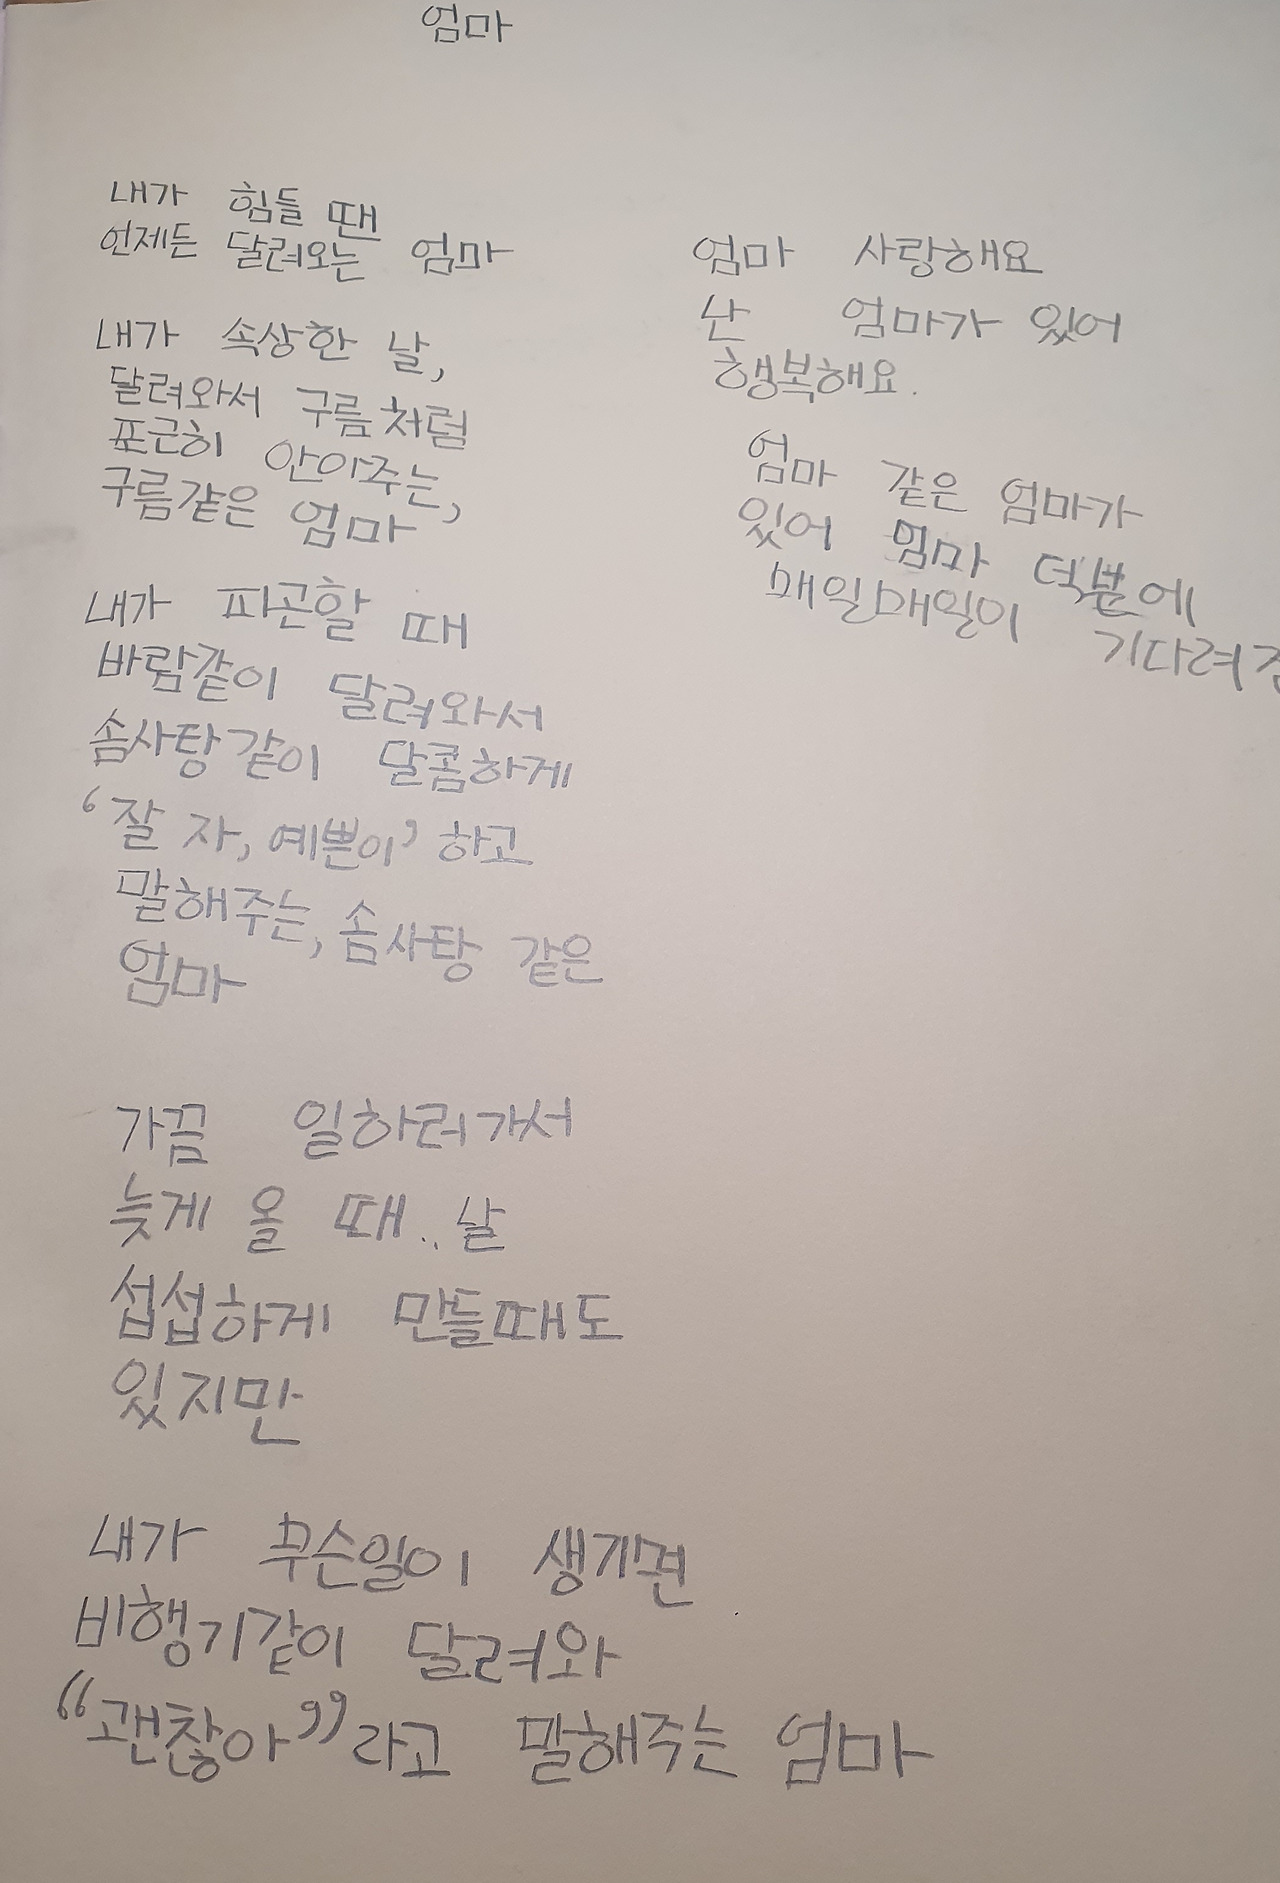 엄마
내가 힘들 땐
언제든 달려오는 엄마
내가 속상한 날,
달려와서 구름처럼
포근히 안아주는,
구름같은 엄마
내가 피곤할 때
바람같이 달려와서
솜사탕같이 달콤하게
‘잘 자, 예쁜이’ 하고
말해주는, 솜사탕 같은
엄마
가끔 일하러가서
늦게 올 때.. 날
섭섭하게 만들때도
있지만
내가 무슨일이 생기면
비행기같이 달려와
“괜찮아”라고 말해주는 엄마
엄마 사랑해요
난 엄마가 있어
행복해요.
엄마 같은 엄마가
있어 엄마 덕분에
매일매일이